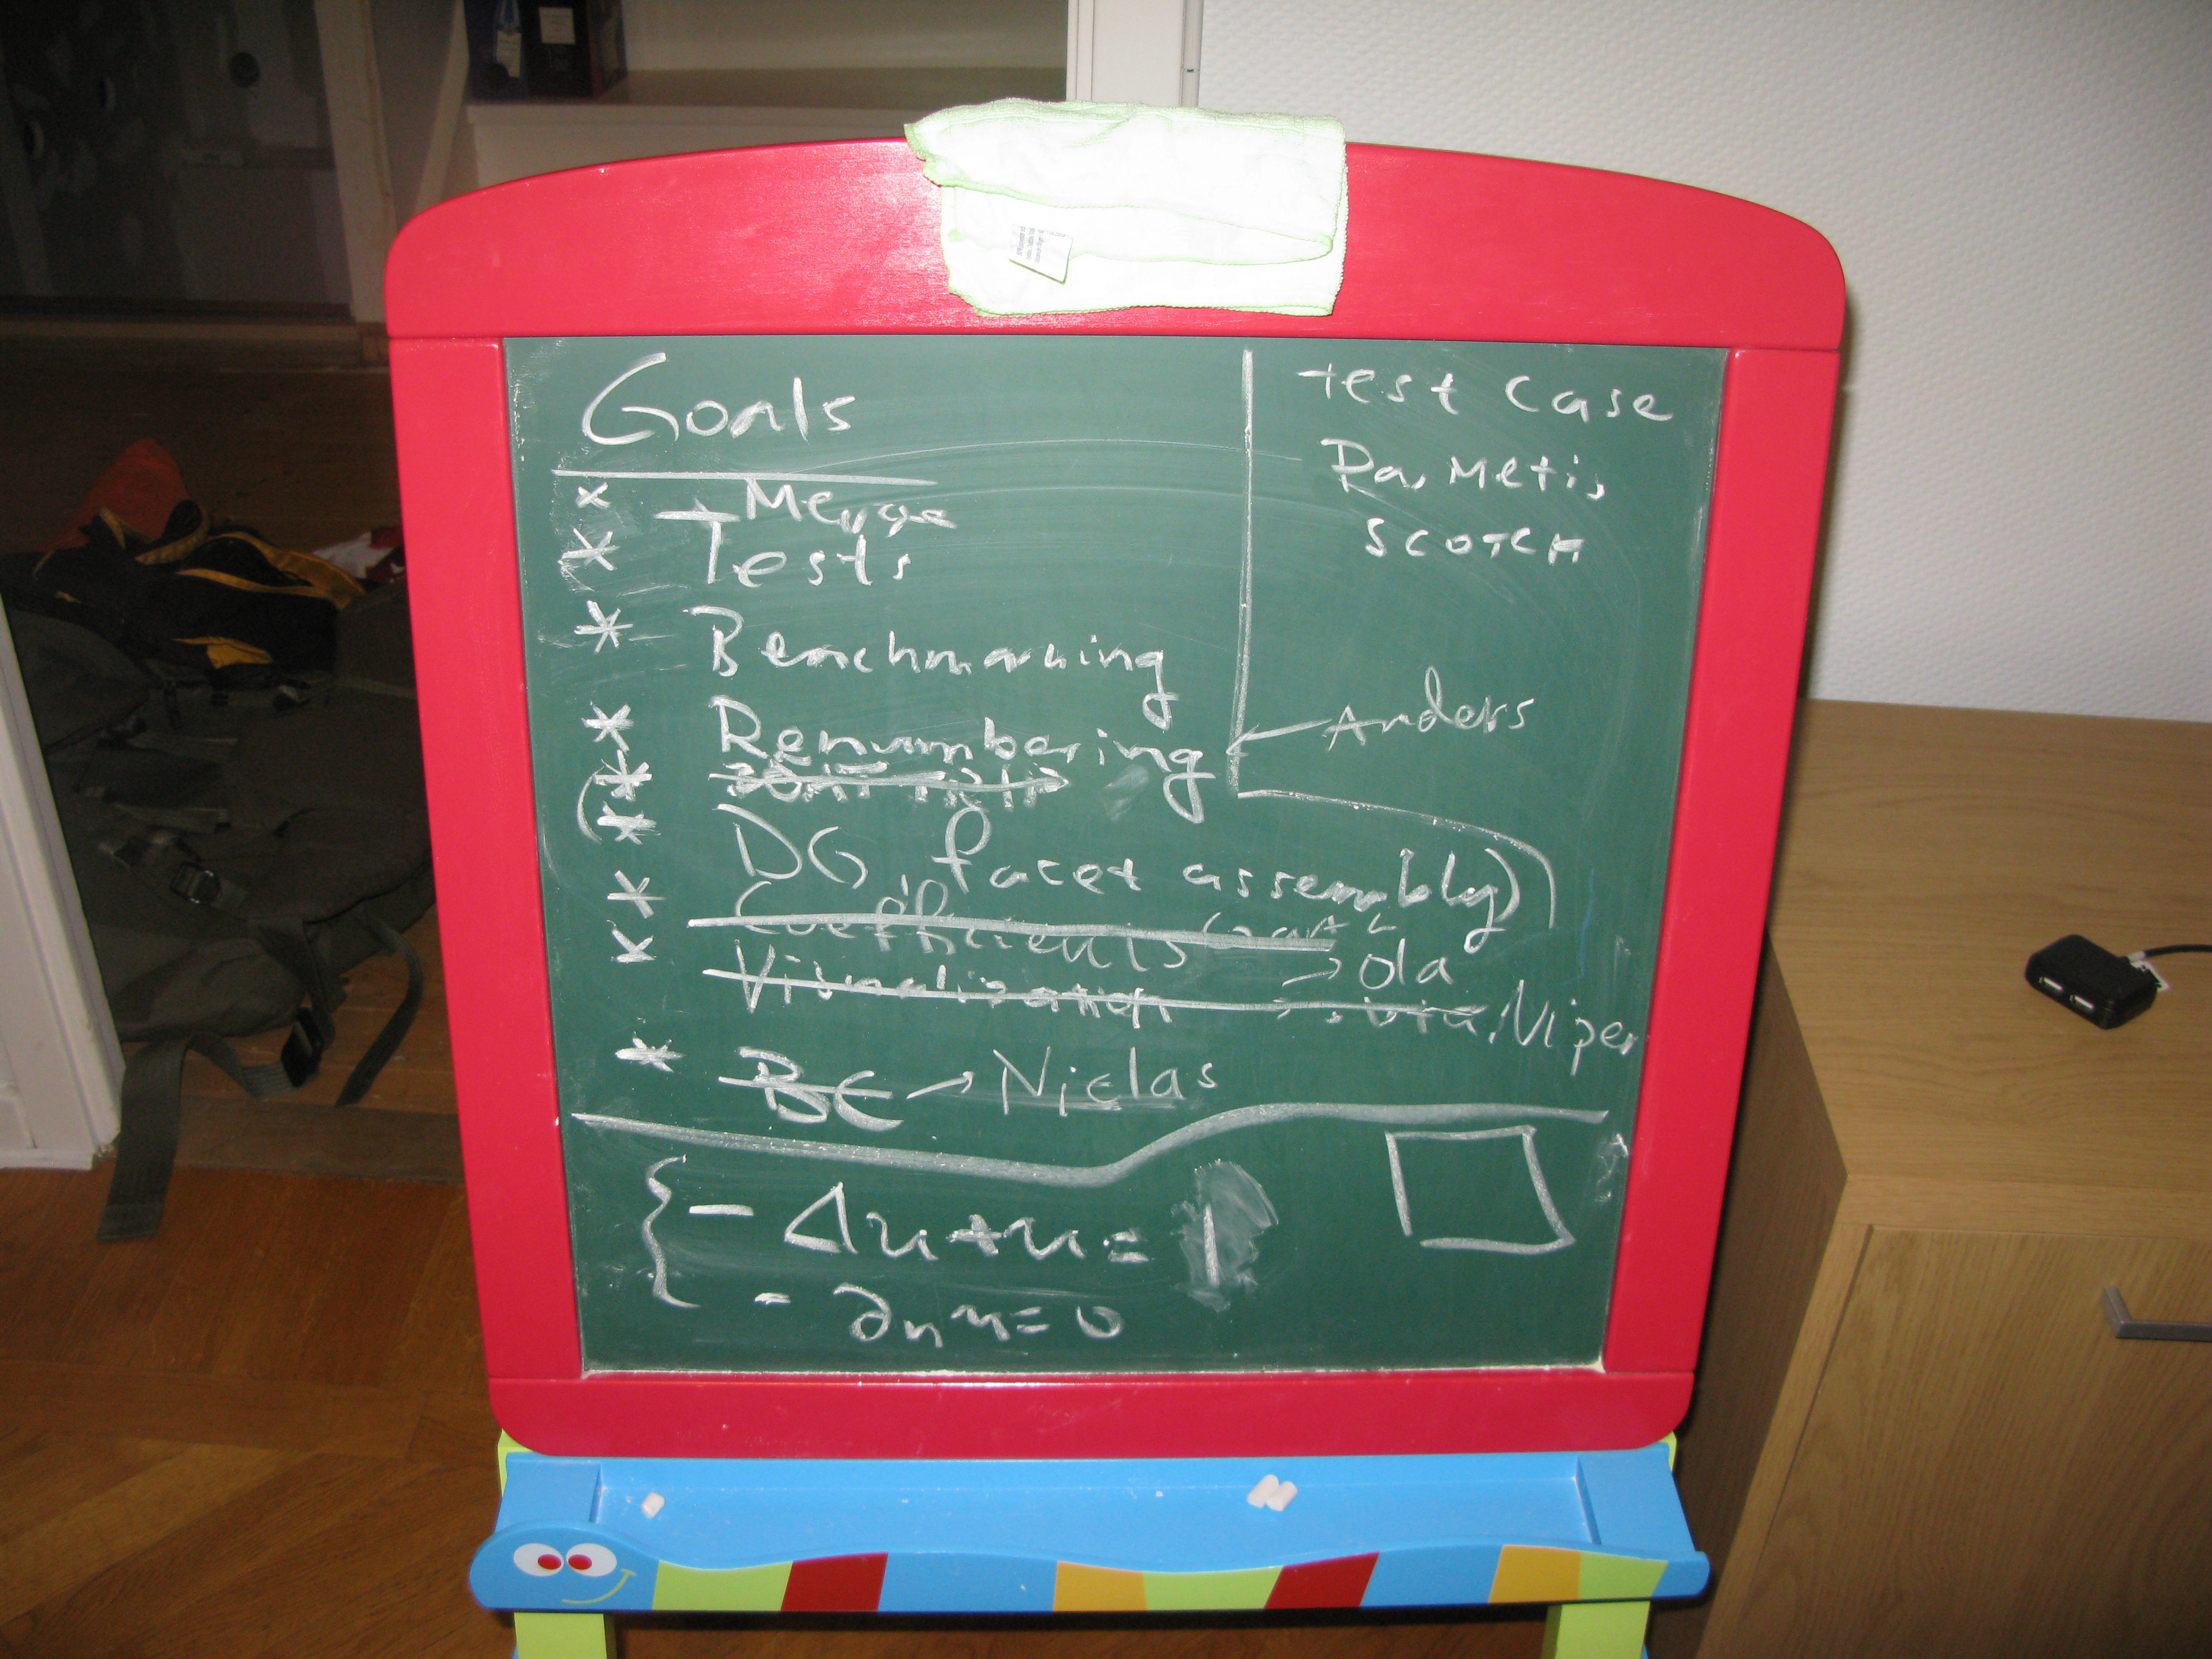 Goals
* Merge
* Tests
* Benchmarking
* Renumbering ← Anders
*
(* DG, facet assembly)
* Coefficients → Ola
* Visualization → : Viper
* BC → Niclas
test case
ParMetis
SCOTCH
{ - Δu + u = 1
- ∂n u = 0